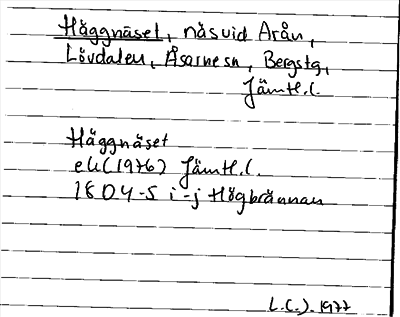 Häggnäset, näs vid Arån,
Lövdalen, Åsarne sn, Bergs tg,
Jämtl.l.
Häggnäset
ek (1976) Jämtl.l.
18D 4-5 i-j Högbrännan
L.(.). 1977